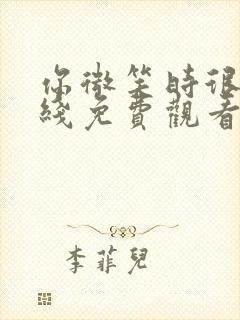 你微笑時很
綫免費觀看
李菲兒